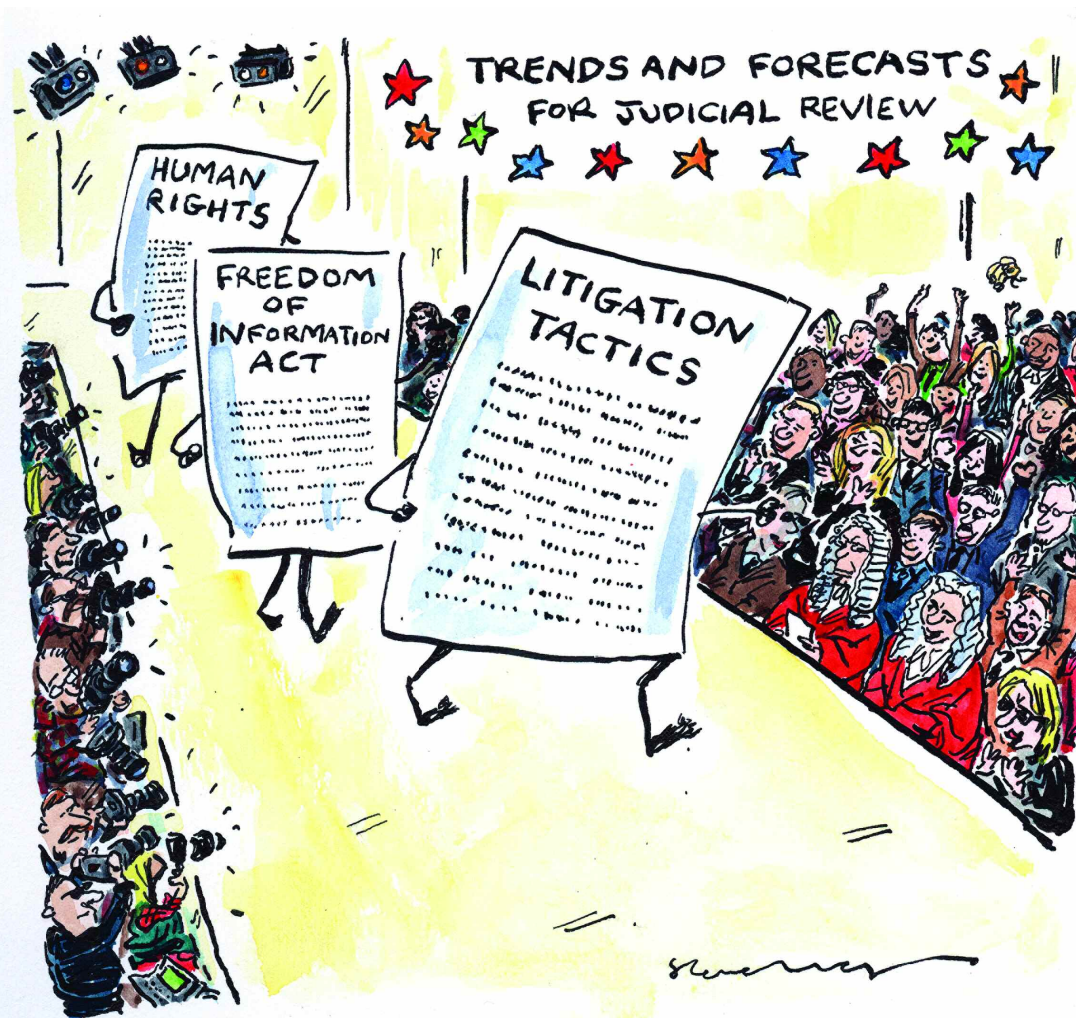 TRENDS AND FORECASTS
FOR JUDICIAL REVIEW
HUMAN
RIGHTS
FREEDOM
OF
INFORMATION
ACT
LITIGATION
TACTICS